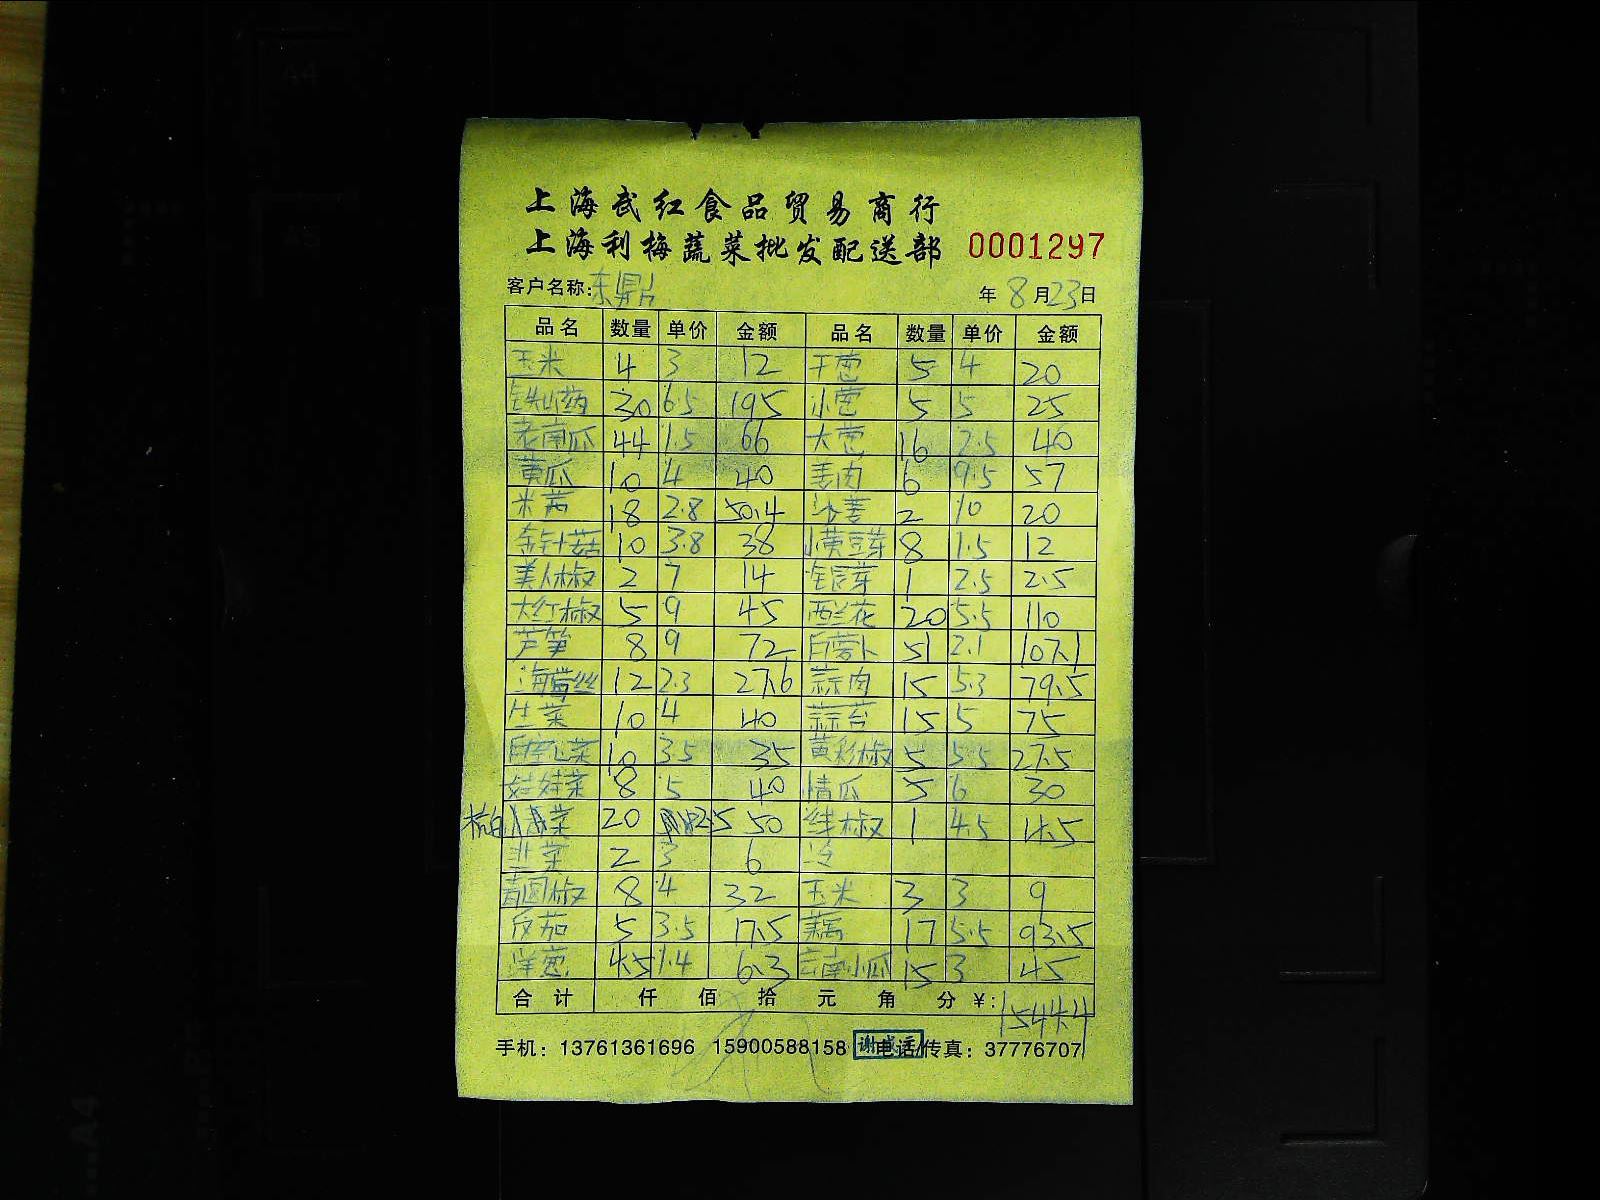 上海武红食品贸易商行
上海利梅蔬菜批发配送部 0001297
客户名称:东鼎 年8月23日
品名 数量 单价 金额 品名 数量 单价 金额
玉米 4 3 12 干葱 5 4 20
铁山药 30 6.5 195 小葱 5 5 25
老南瓜 44 1.5 66 大葱 16 2.5 40
黄瓜 10 4 40 姜肉 6 9.5 57
米茄 18 2.8 50.4 沙姜 2 10 20
金针菇 10 3.8 38 小黄豆芽 8 1.5 12
美人椒 2 7 14 银芽 1 2.5 2.5
大红椒 5 9 45 西兰花 20 5.5 110
芦笋 8 9 72 白萝卜 51 2.1 107.1
海带丝 12 2.3 27.6 蒜肉 15 5.3 79.5
生菜 10 4 40 蒜苔 15 5 75
白空心菜 10 3.5 35 黄彩椒 5 5.5 27.5
娃娃菜 8 5 40 情瓜 5 6 30
杭白菜 20 2.5 50 线椒 1 4.5 4.5
韭菜 2 3 6 冷
青圆椒 8 4 32 玉米 3 3 9
反茄 5 3.5 17.5 藕 17 5.5 93.5
洋葱 4.5 1.4 6.3 云南小瓜 15 3 45
合计 仟 佰 拾 元 角 分 ¥:1544.4
手机:13761361696 15900588158 电话/传真:37776707